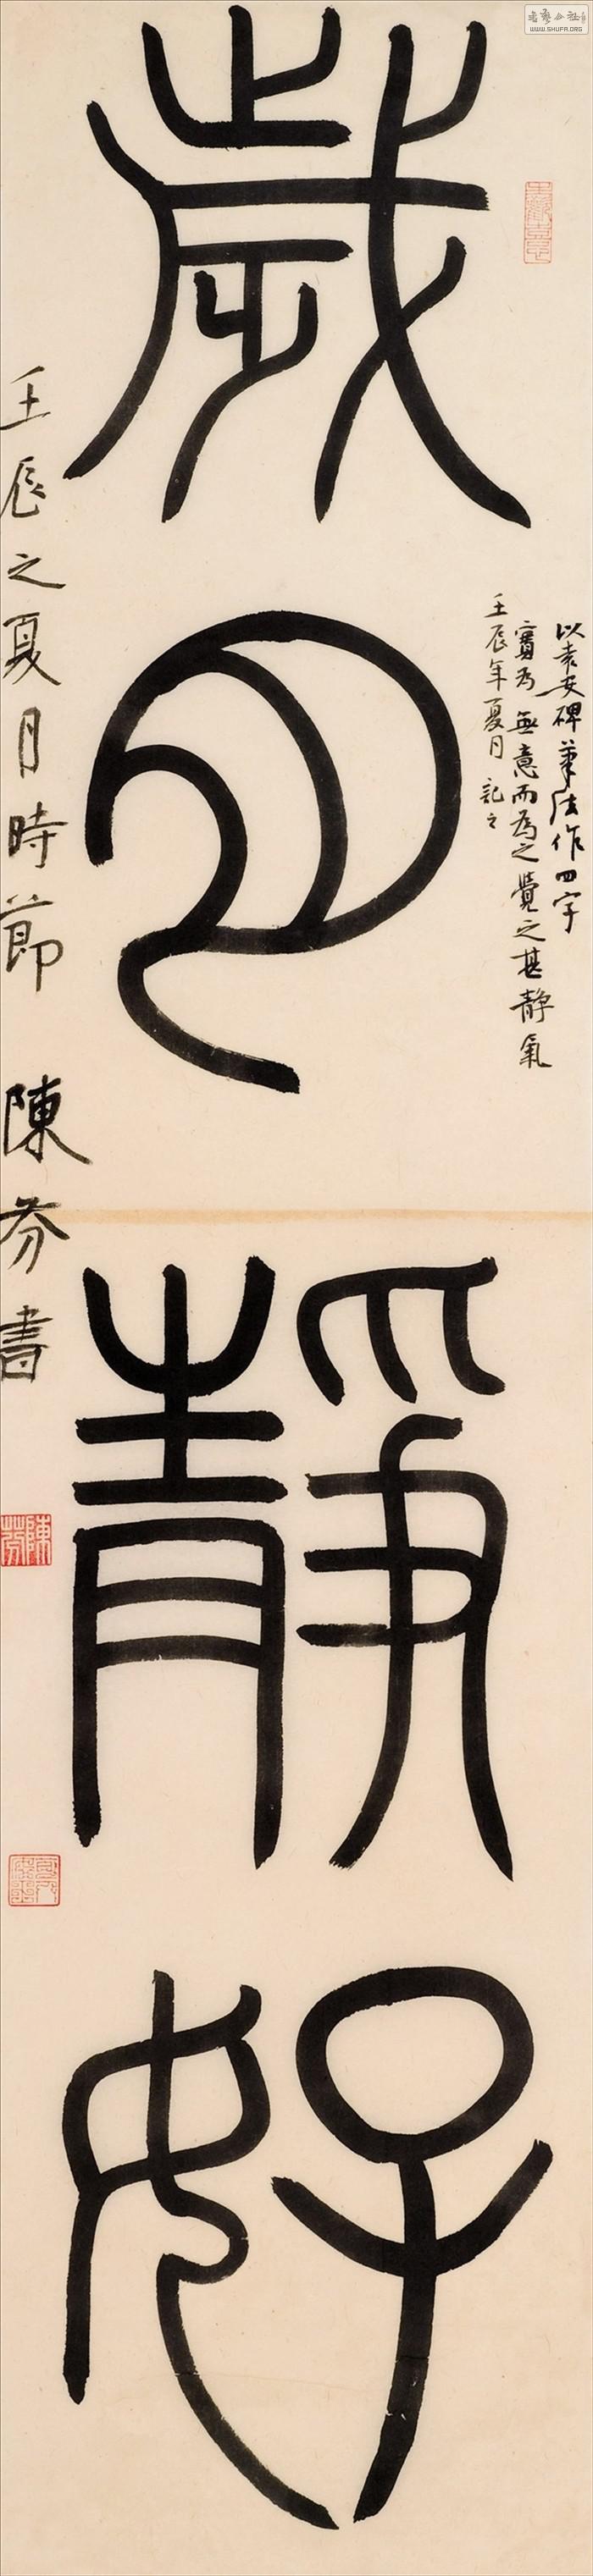 歲月靜好
以袁安碑筆法作四字
實為無意而為之覺之甚靜氣
壬辰年夏月記之
壬辰之夏月時節 陳芬書
陳芬
WWW.SHUFA.ORG